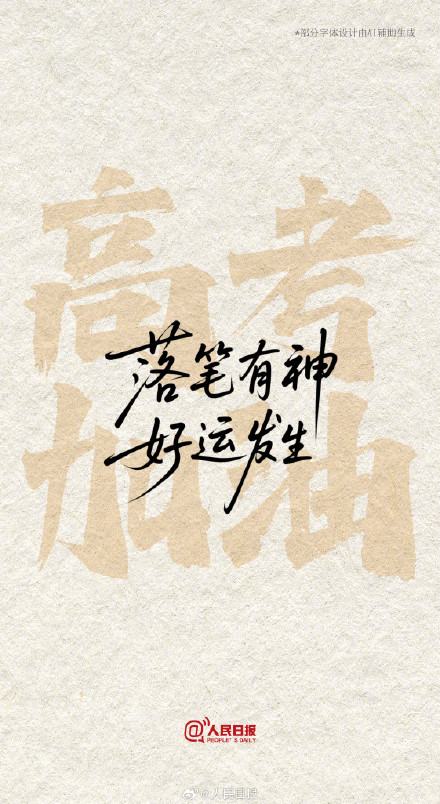 *部分字体设计由AI辅助生成
高考
加油
落笔有神
好运发生
@人民日报
PEOPLE'S DAILY
@人民日报